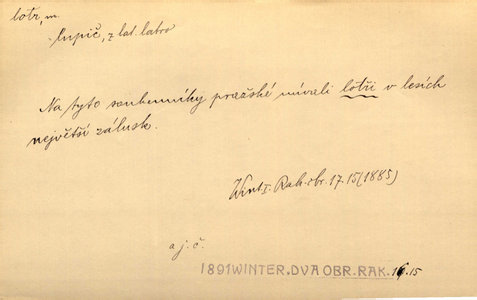 lotr, m.
- lupič, z lat. latro
Na tyto soukenníky pražské mívali lotři v lesích
největší zálusk.
Wint. Rak. obr. 17. 15 (1885)
a j. č.
1891 WINTER. DVA OBR. RAK. 16. 15